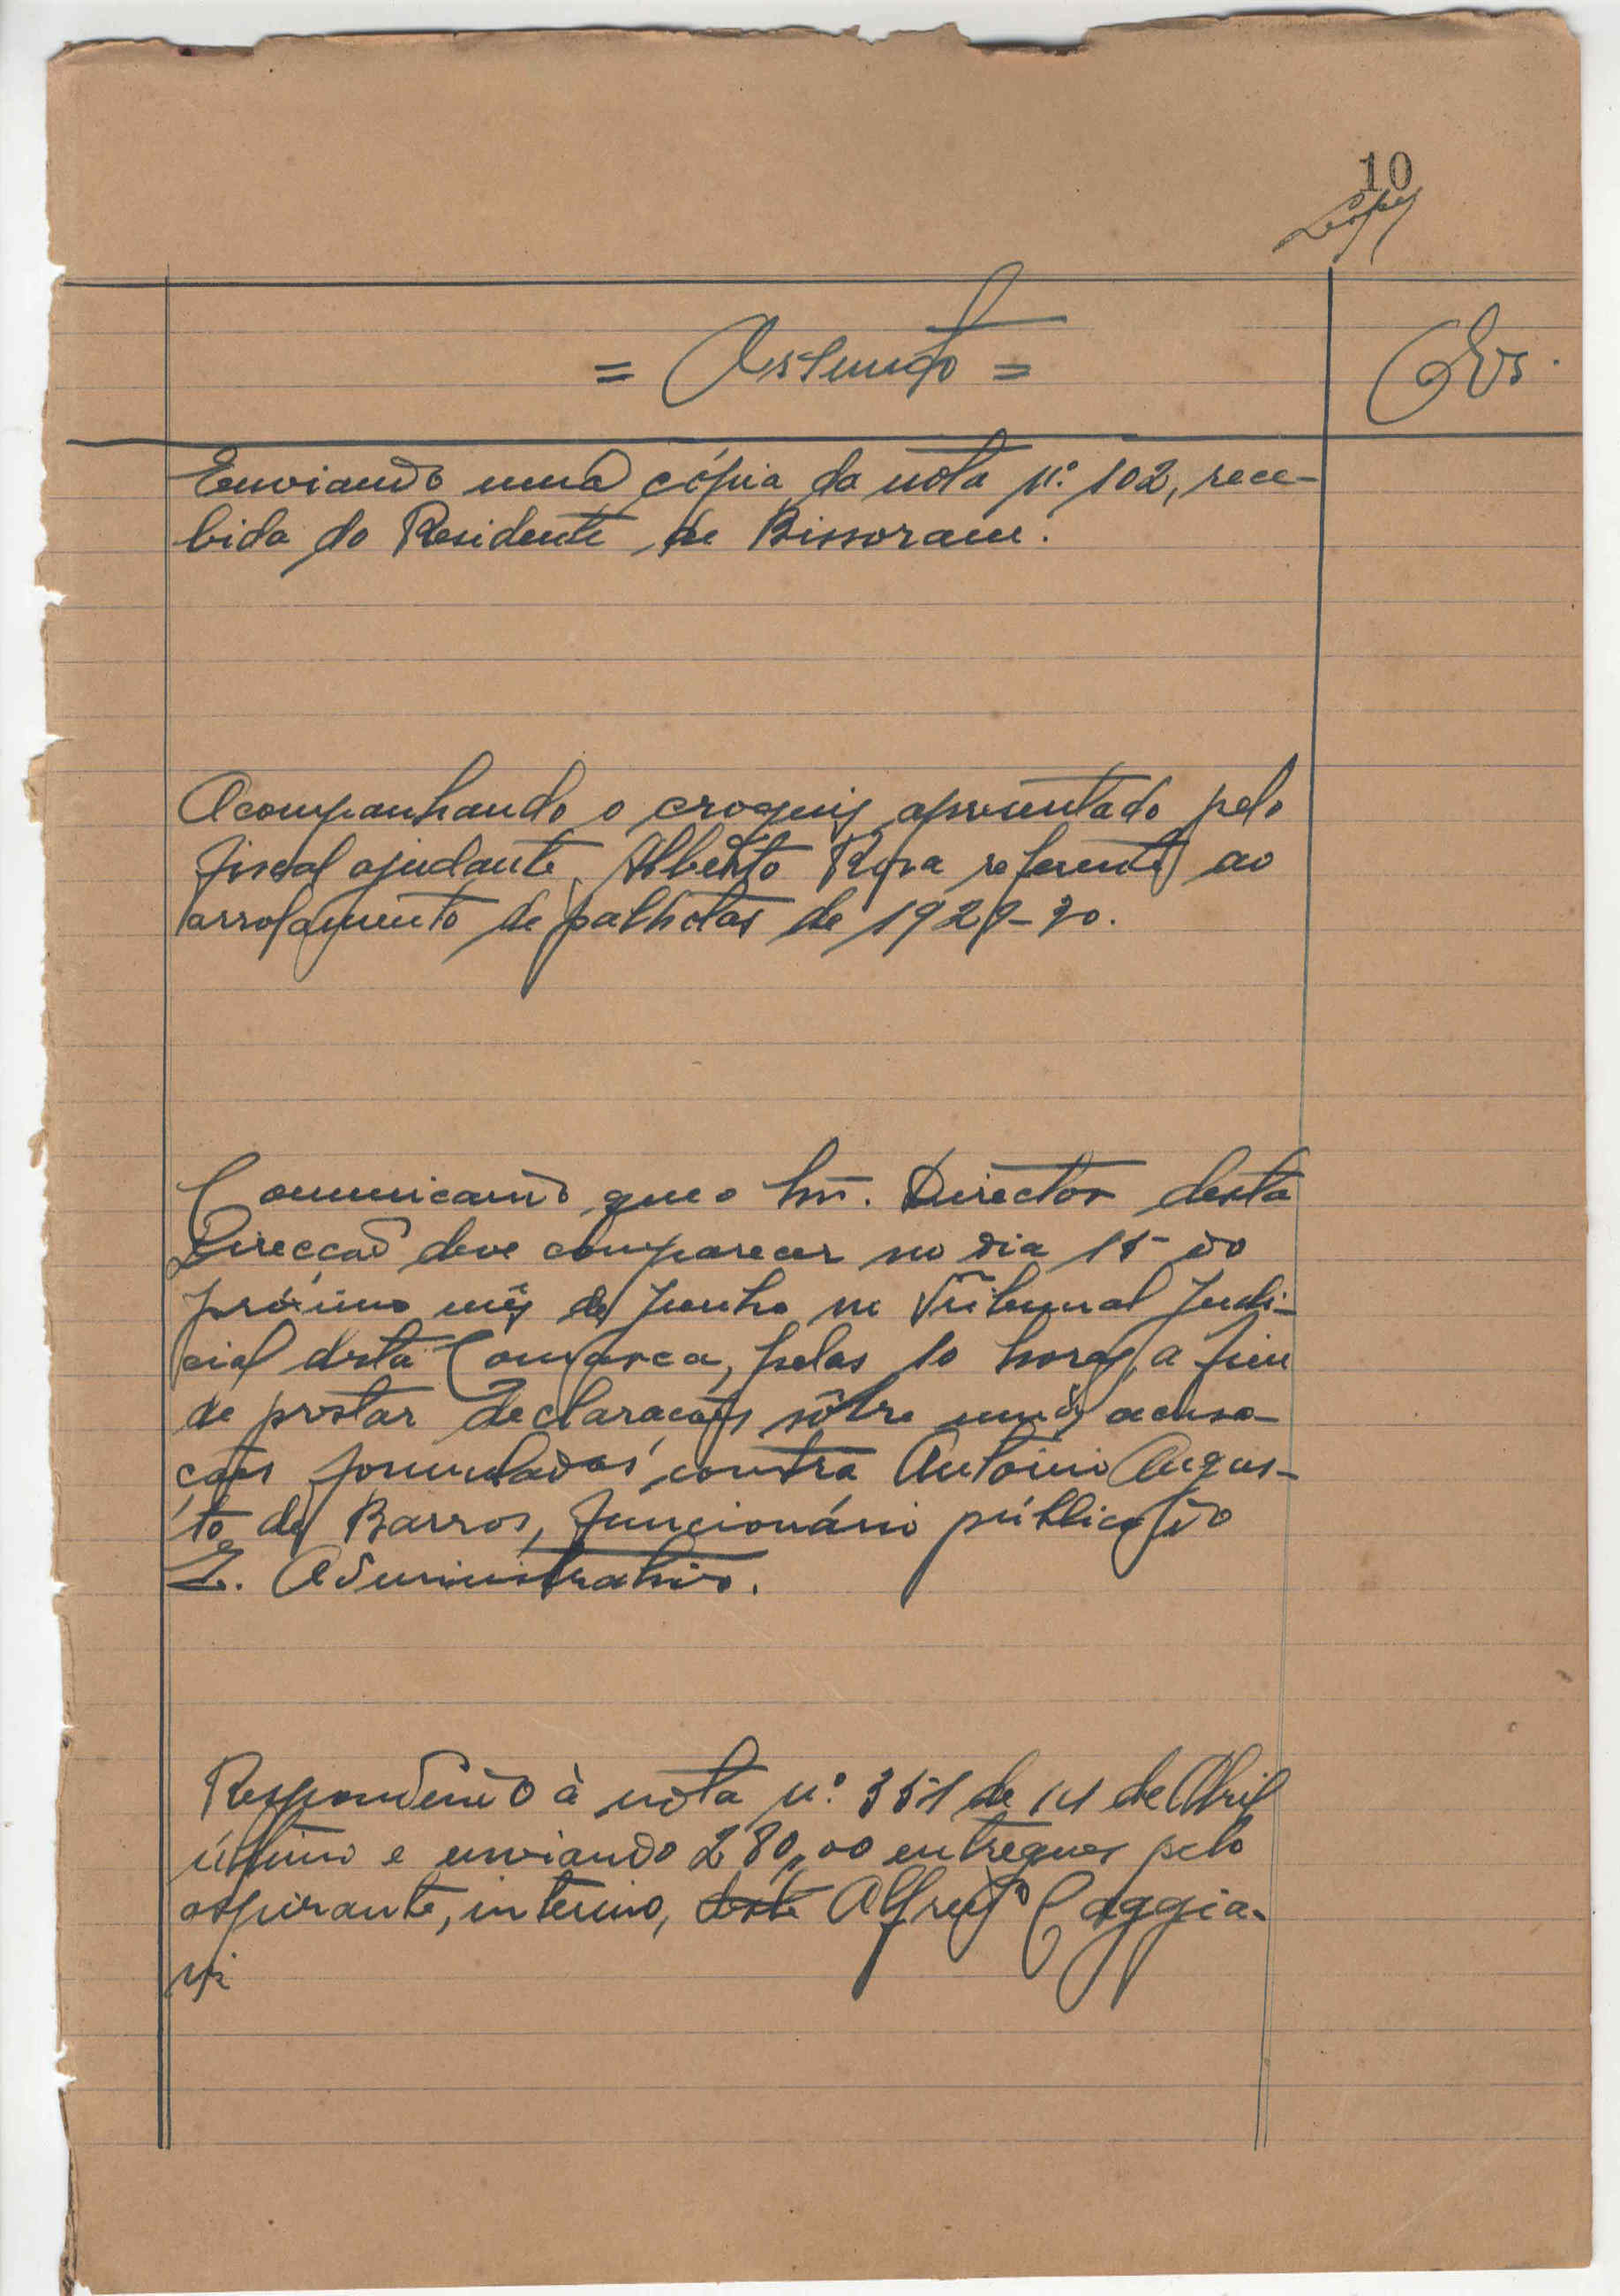 10
Lopes
= Assunto =
Obs.
Enviando uma cópia da nota n.º 102, rece-
bida do Residente de Bissoram.
Acompanhando o croquis apresentado pelo
fiscal ajudante, Alberto Rosa referente ao
arrolamento de palhotas de 1929-30.
Comunicando que o Snr. Director desta
Direcção deve comparecer no dia 15 do
próximo mês de Junho no Tribunal Judi-
cial desta Comarca, pelas 10 horas, a fim
de prestar declarações sôbre umas acusa-
ções formuladas contra António Augus-
to de Barros, funcionário público do
Q. Administrativo.
Respondendo à nota n.º 351 de 14 de Abril
último e enviando 280,00 entregues pelo
aspirante, interino, deste Alfredo Caggia-
ni